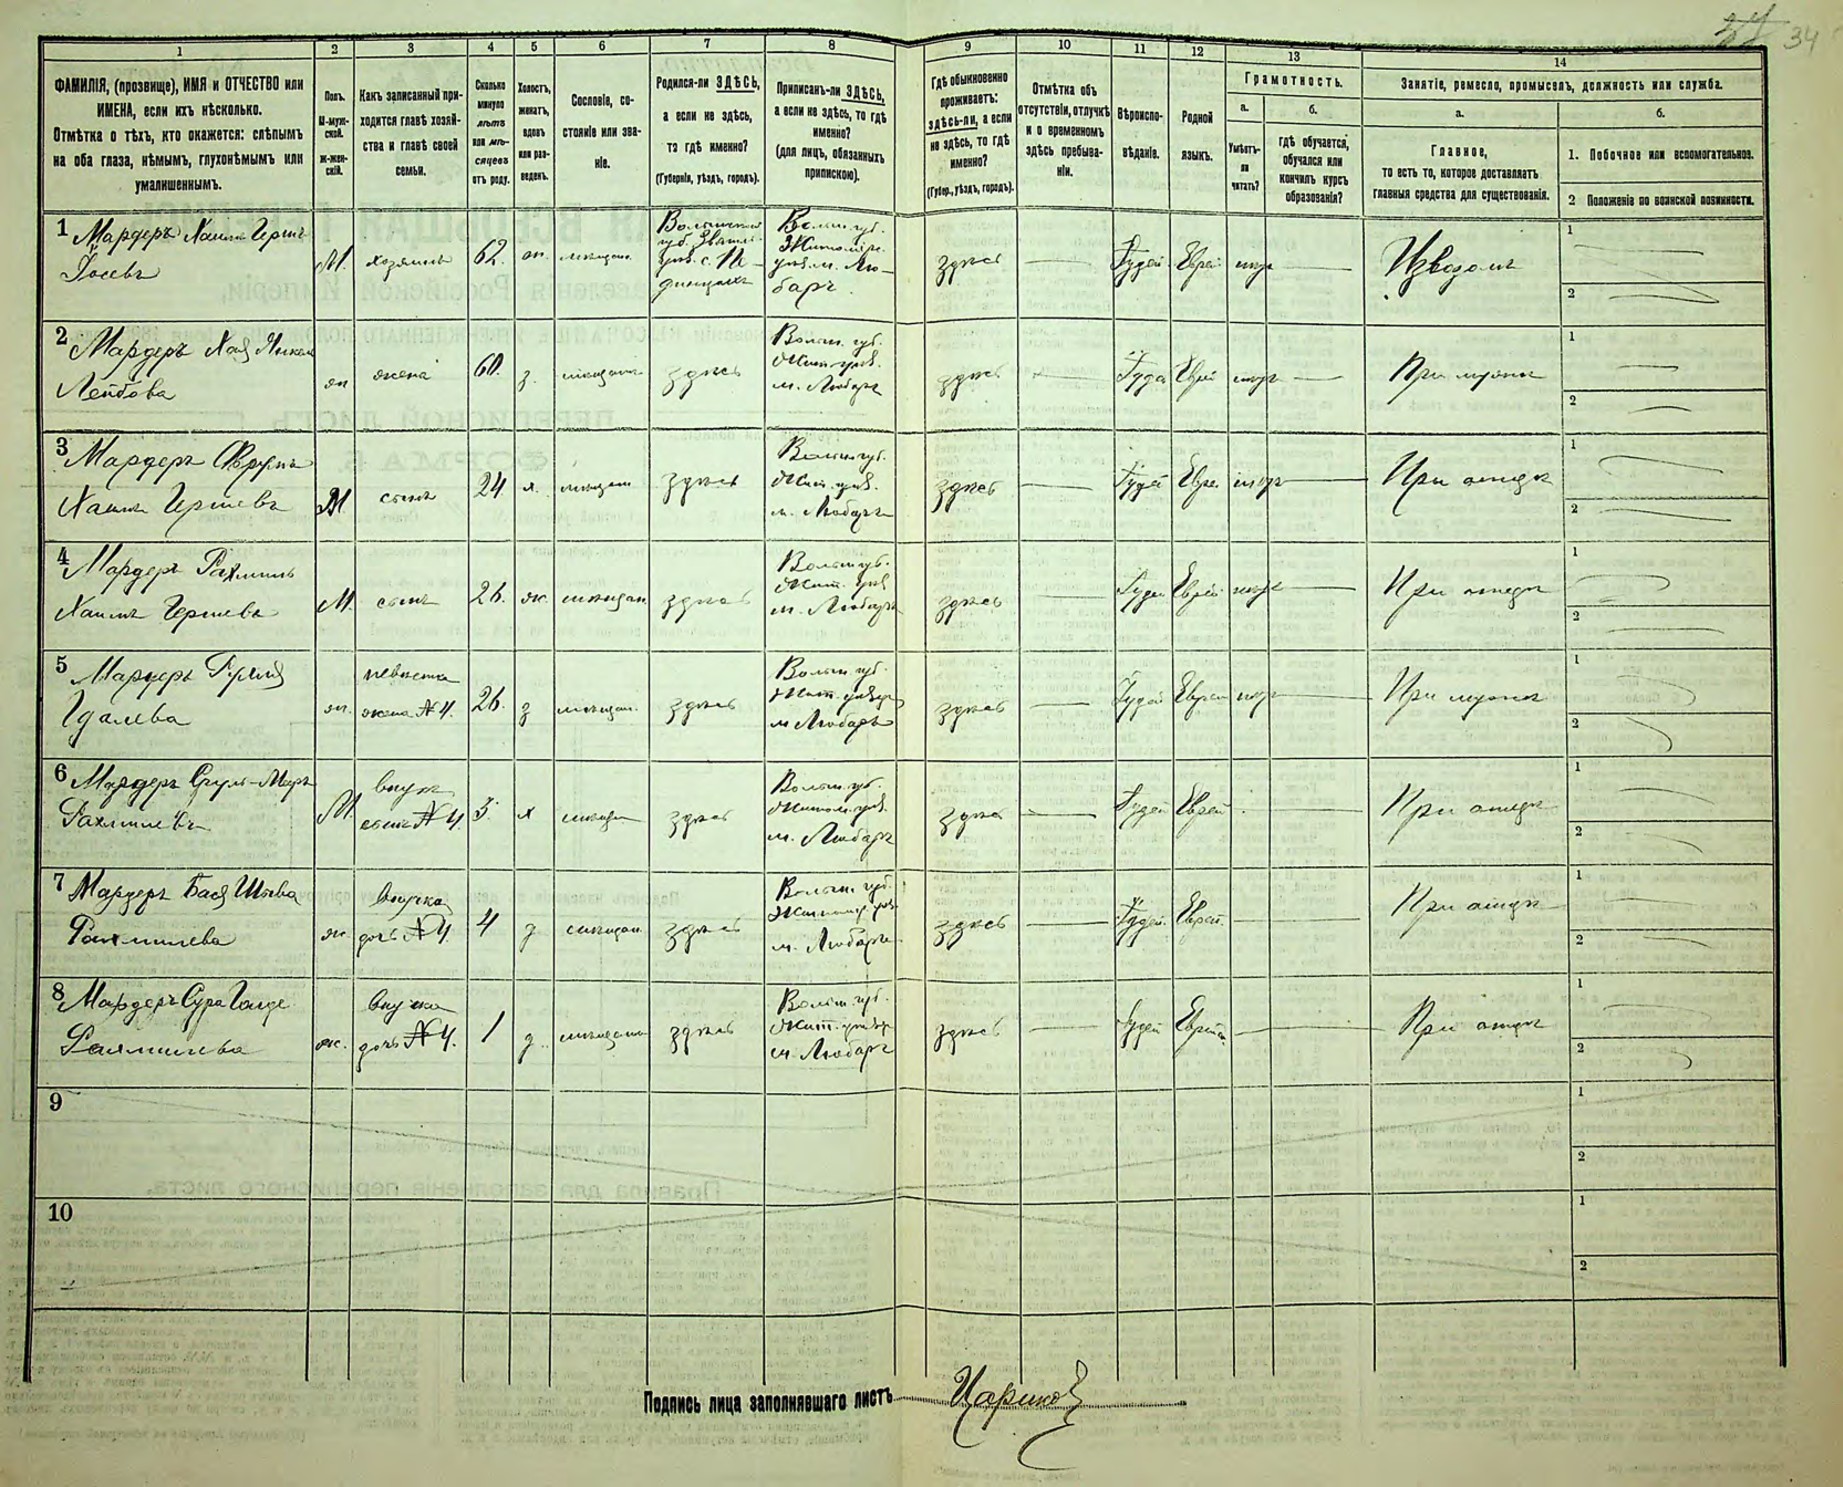 34
1 2 3 4 5 6 7 8 9 10 11 12 13 14
ФАМИЛІЯ, (прозвище), ИМЯ и ОТЧЕСТВО или
ИМЕНА, если ихъ нѣсколько.
Отмѣтка о тѣхъ, кто окажется: слѣпымъ
на оба глаза, нѣмымъ, глухонѣмымъ или
умалишеннымъ.
Полъ.
М-муж-
ской.
ж-жен-
скій.
Какъ записанный при-
ходится главѣ хозяй-
ства и главѣ своей
семьи.
Сколько
минуло
лѣтъ
или мѣ-
сяцевъ
отъ роду.
Холостъ,
женатъ,
вдовъ
или раз-
веденъ.
Сословіе, со-
стояніе или зва-
ніе.
Родился-ли ЗДѢСЬ,
а если не здѣсь,
то гдѣ именно?
(Губернія, уѣздъ, городъ).
Приписанъ-ли ЗДѢСЬ,
а если не здѣсь, то гдѣ
именно?
(для лицъ, обязанныхъ
припискою).
Гдѣ обыкновенно
проживаетъ:
здѣсь-ли, а если
не здѣсь, то гдѣ
именно?
(Губер., уѣздъ, городъ).
Отмѣтка объ
отсутствіи, отлучкѣ
и о временномъ
здѣсь пребыва-
ніи.
Вѣроиспо-
вѣданіе.
Родной
языкъ.
Грамотность.
а.
Умѣетъ-
ли
читать?
б.
гдѣ обучается,
обучался или
кончилъ курсъ
образованія?
Занятіе, ремесло, промыселъ, должность или служба.
а.
Главное,
то есть то, которое доставляетъ
главныя средства для существованія.
б.
1. Побочное или вспомогательное.
2 Положеніе по воинской повинности.
1 Мардеръ Хаимъ Герш
Іосевъ
М. хозяинъ 62. жн. мѣщан.
Волынской
губ.
уѣз. с.
Волын. губ.
Житомір.
уѣз. м. Лю-
баръ.
здѣсь — Іудей Еврей — Извозомъ
1
2
2 Мардеръ Хая
Лейбова
жн жена 60. з. мѣщан здѣсь
Волын. губ.
Жит. уѣз.
м. Любаръ
здѣсь — Іудей Еврей — При мужѣ
1
2
3 Мардеръ
Хаимъ Гершевъ
М сынъ 24 х. мѣщан здѣсь
Волын. губ.
Жит. уѣз.
м. Любаръ
здѣсь — Іудей Еврей — При отцѣ
1
2
4 Мардеръ Рахмиль
Хаимъ Гершевъ
М. сынъ 26. жн. мѣщан. здѣсь
Волын губ.
Жит. уѣз
м. Любаръ
здѣсь — Іудей Еврей — При отцѣ
1
2
5 Мардеръ
Гдалева
жн. невѣстка
жена №4. 26. з мѣщан. здѣсь
Волын губ.
Жит. уѣзд
м Любаръ
здѣсь — Іудей Еврей — При мужѣ
1
2
6 Мардеръ Сруль-Меръ
Рахмилевъ
М. внукъ
сынъ №4. 3. х мѣщан здѣсь
Волын. губ.
Житом. уѣз.
м. Любаръ
здѣсь — Іудей Еврей — При отцѣ
1
2
7 Мардеръ Бася Шейва
Рахмилева
жн. внучка
дочь №4. 4 д мѣщан. здѣсь
Волын. губ.
Житомир. уѣз.
м. Любаръ
здѣсь — Іудей. Еврей. — При отцѣ
1
2
8 Мардеръ Сура Голде
Рахмилева
жн. внучка
дочь №4. 1 д. мѣщан здѣсь
Волын. губ.
Жит. уѣзд
м. Любаръ
здѣсь — Іудей Еврей — При отцѣ
1
2
9
1
2
10
1
2
Подпись лица заполнявшаго листъ